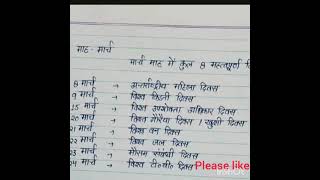 माह - मार्च
मार्च माह में कुल 8 महत्वपूर्ण
8 मार्च → अन्तर्राष्ट्रीय महिला दिवस
9 मार्च → विश्व किडनी दिवस
15 मार्च → विश्व उपभोक्ता अधिकार दिवस
20 मार्च → विश्व गौरैया दिवस / खुशी दिवस
21 मार्च → विश्व वन दिवस
22 मार्च → विश्व जल दिवस
23 मार्च → मौसम संबंधी दिवस
24 मार्च → विश्व टी०बी० दिवस
Please like